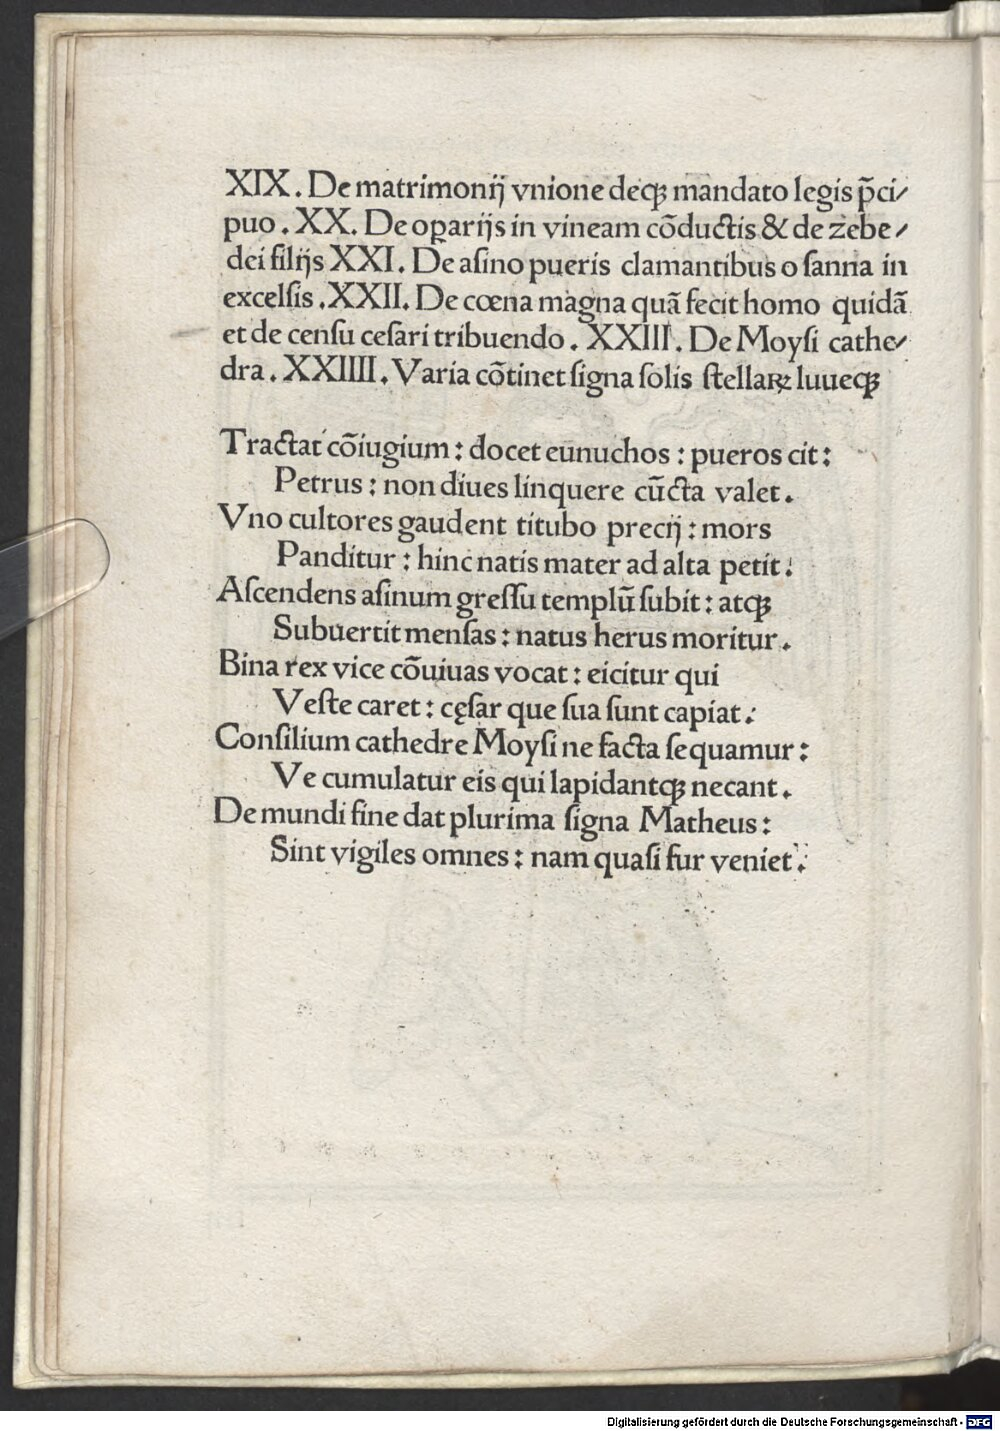 XIX. De matrimonĳ vnione deqꝫ mandato legis p̃ci⸗
puo. XX. De oꝑarĳs in vineam cõductis & de zebe⸗
dei filĳs XXI. De aſino pueris clamantibus o ſanna in
excelſis. XXII. De cœna magna quã fecit homo quidã
et de cenſu ceſari tribuendo. XXIII. De Moyſi cathe⸗
dra. XXIIII. Varia cõtinet ſigna ſolis ſtellaꝝ luueqꝫ
Tractat cõiugium: docet eunuchos: pueros cit:
Petrus: non diues linquere cũcta valet.
Vno cultores gaudent titubo precĳ: mors
Panditur: hinc natis mater ad alta petit:
Aſcendens aſinum greſſu templũ ſubit: atqꝫ
Subuertit menſas: natus herus moritur.
Bina rex vice cõuiuas vocat: eicitur qui
Veſte caret: cęſar que ſua ſunt capiat:
Conſilium cathedre Moyſi ne facta ſequamur:
Ve cumulatur eis qui lapidantqꝫ necant.
De mundi fine dat plurima ſigna Matheus:
Sint vigiles omnes: nam quaſi fur veniet:
Digitalisierung gefördert durch die Deutsche Forschungsgemeinschaft - DFG